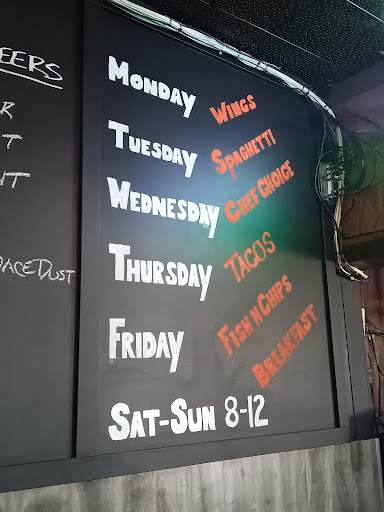 EERS
R
T
HT
ACEDUST
MONDAY WINGS
TUESDAY SPAGHETTI
WEDNESDAY CHEF CHOICE
THURSDAY TACOS
FRIDAY FISH N CHIPS
BREAKFAST
SAT-SUN 8-12